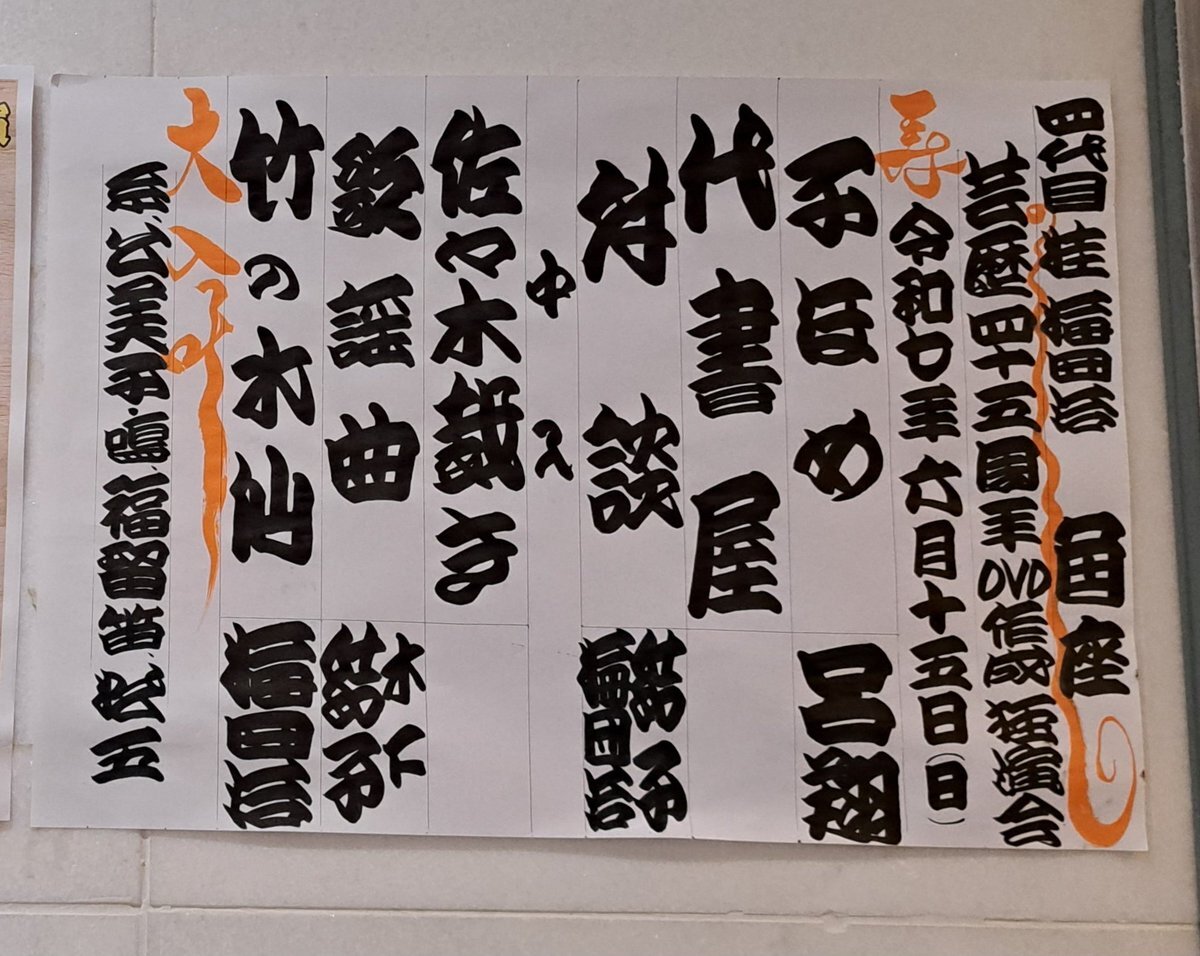 四代目 桂 福団治 角座
芸歴四十五周年DVD作成独演会
寿 令和七年六月十五日(日)
子ほめ 呂翔
代書屋
対談 鈴子 福団治
中入
佐々木裁き
歌謡曲 木下 鈴子
竹の水仙 福団治
大入叶
公美子 鳴 福留 笛